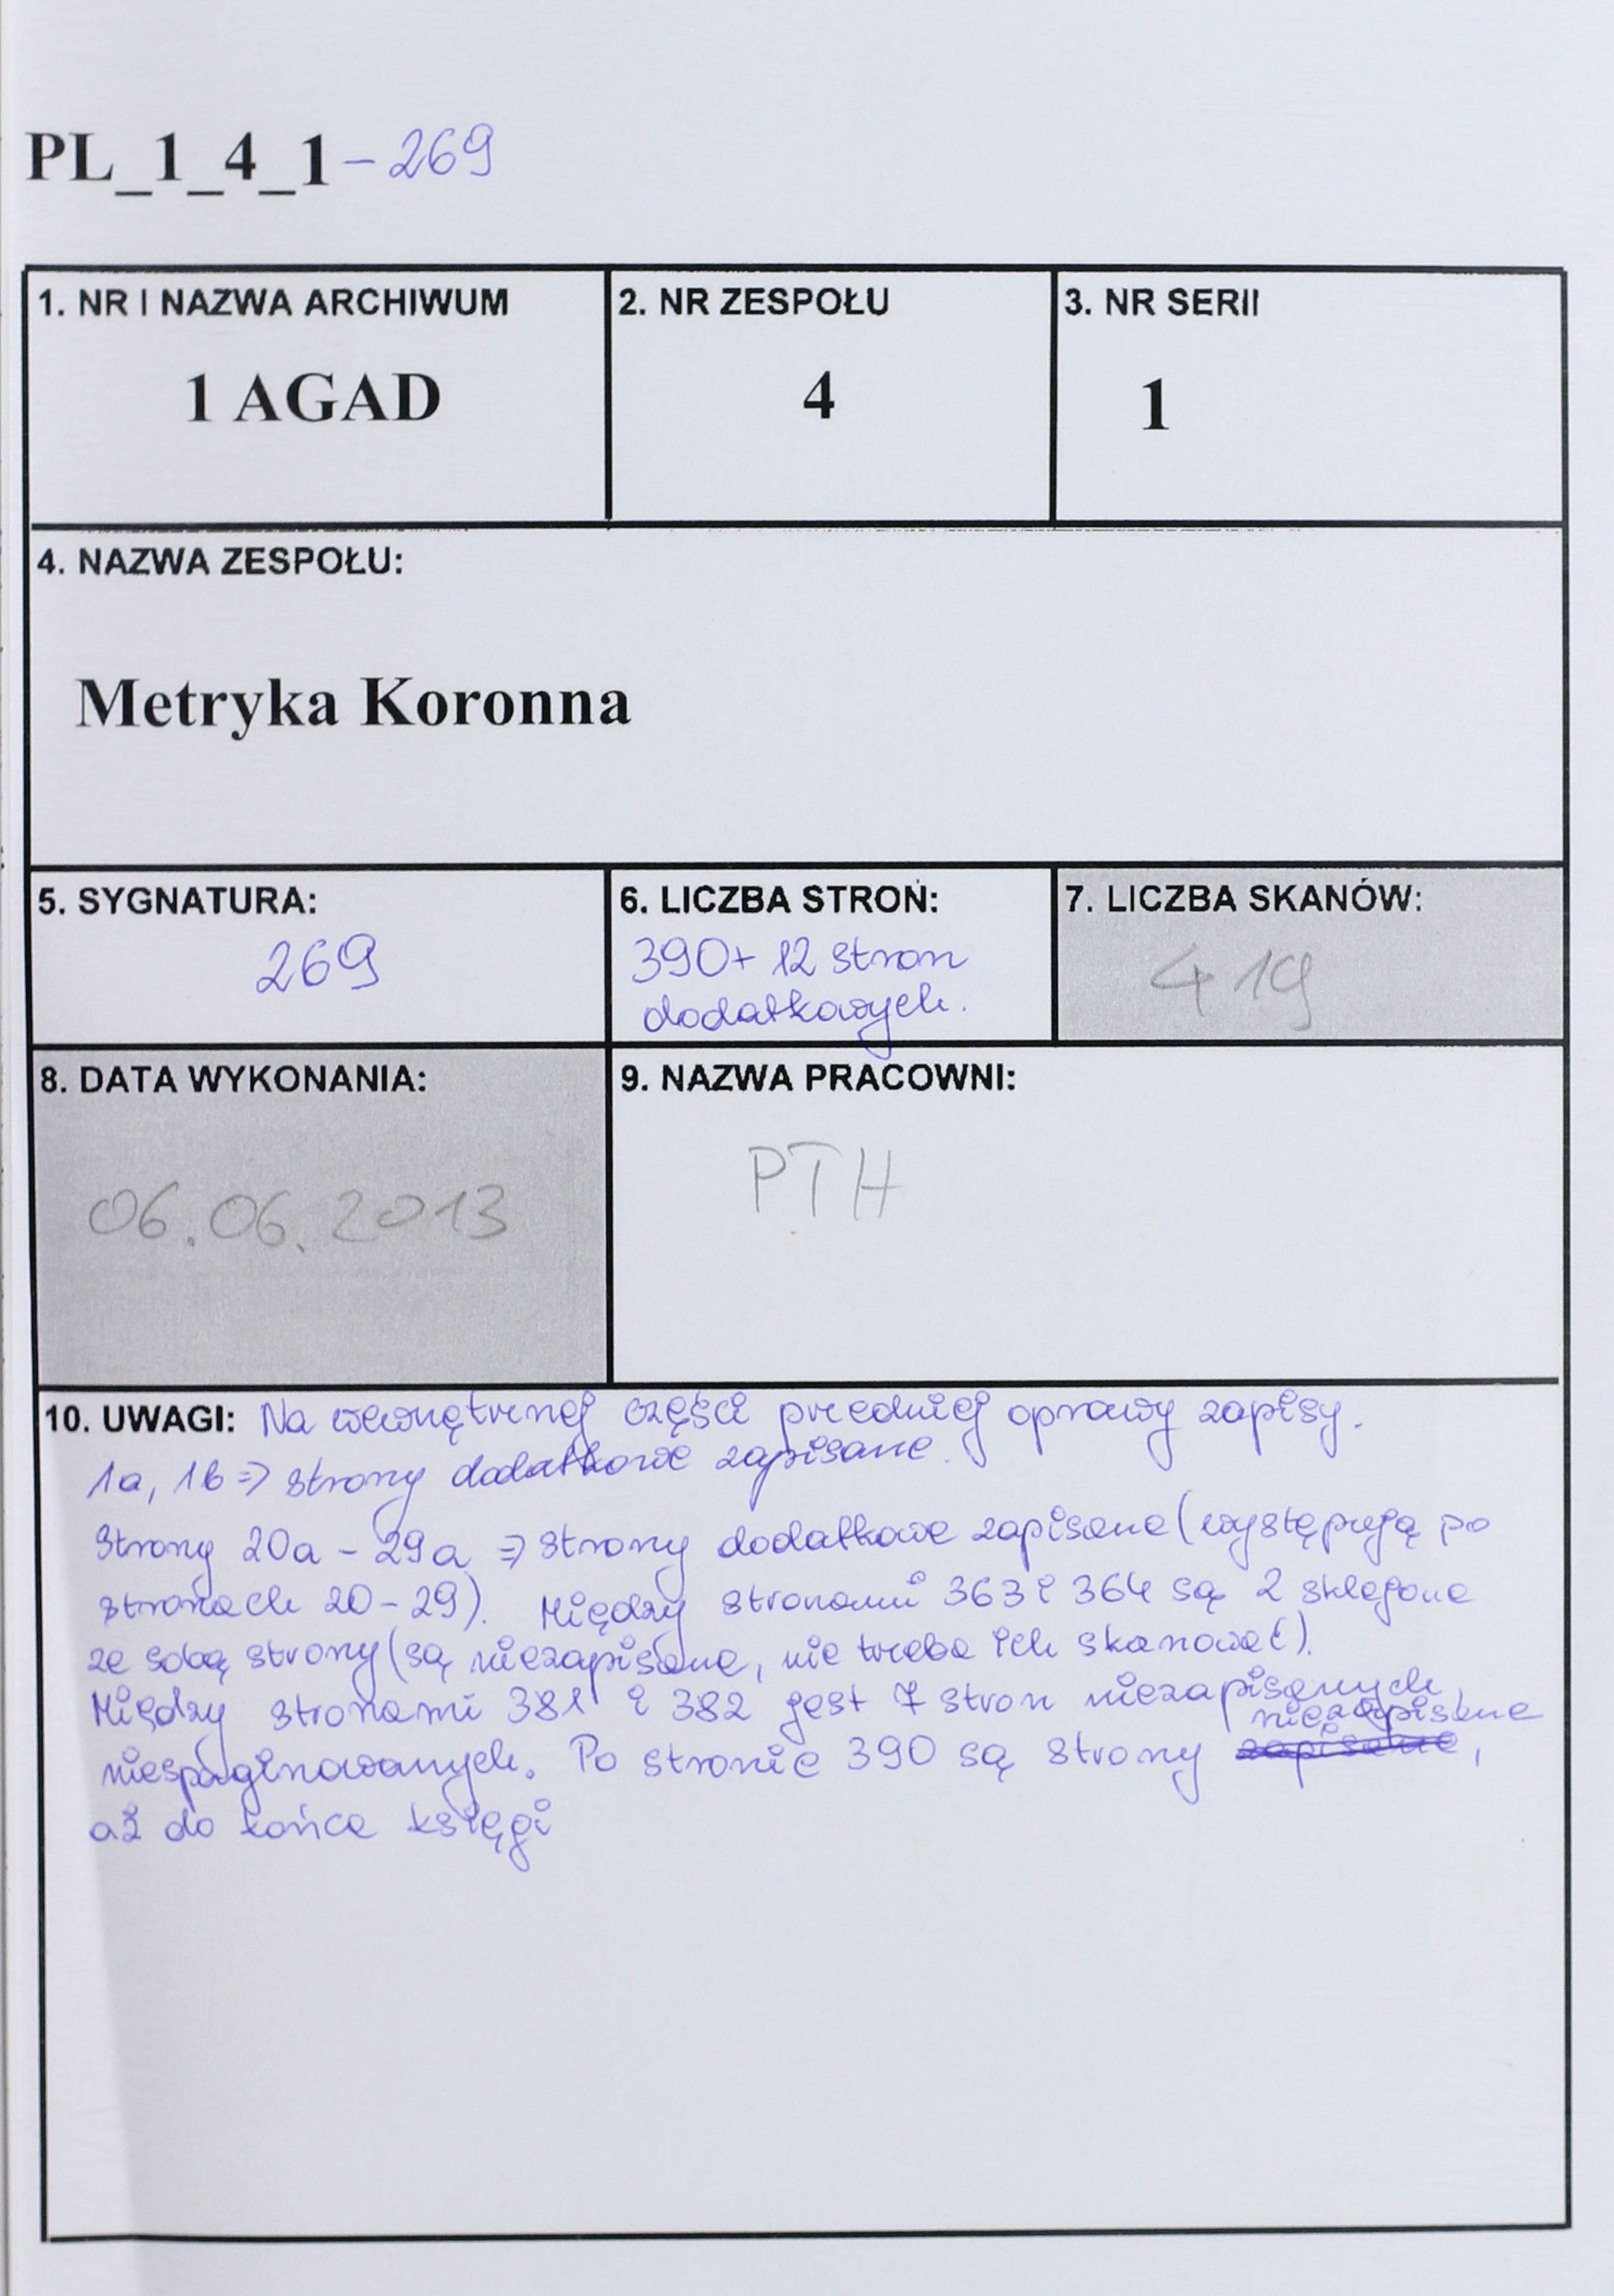 PL_1_4_1 - 269
1. NR I NAZWA ARCHIWUM
1 AGAD
2. NR ZESPOŁU
4
3. NR SERII
1
4. NAZWA ZESPOŁU:
Metryka Koronna
5. SYGNATURA:
269
6. LICZBA STRON:
390+ 12 stron
dodatkowych.
7. LICZBA SKANÓW:
419
8. DATA WYKONANIA:
06.06.2013
9. NAZWA PRACOWNI:
PTH
10. UWAGI: Na wewnętrznej części przedniej oprawy zapisy.
1a, 1b => strony dodatkowe zapisane.
Strony 20a - 29a => strony dodatkowe zapisane (występują po
stronach 20-29). Między stronami 363 i 364 są 2 sklejone
ze sobą strony (są niezapisane, nie trzeba ich skanować).
Między stronami 381 i 382 jest 7 stron niezapisanych,
niezapisane
niespaginowanych. Po stronie 390 są strony zapisane,
aż do końca księgi